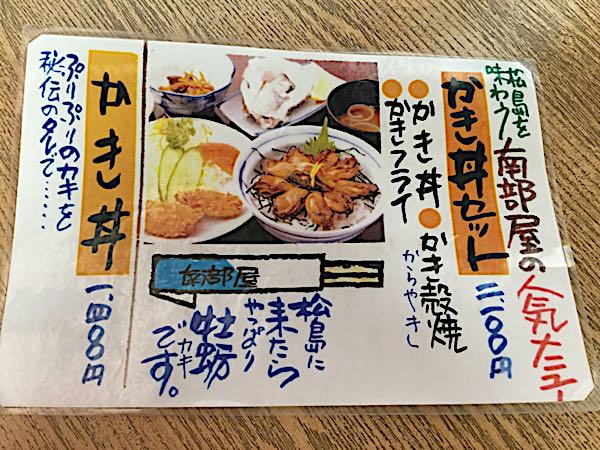 松島を
味わう!
南部屋の人気メニュー
かき丼セット
二、一〇〇円
かき丼
かき殻焼
からやーき
かきフライ
南部屋
松島に
来たら
やっぱり
牡蛎
カキ
です。
かき丼
一、四〇〇円
ぷりぷりのカキを
秘伝のタレで……